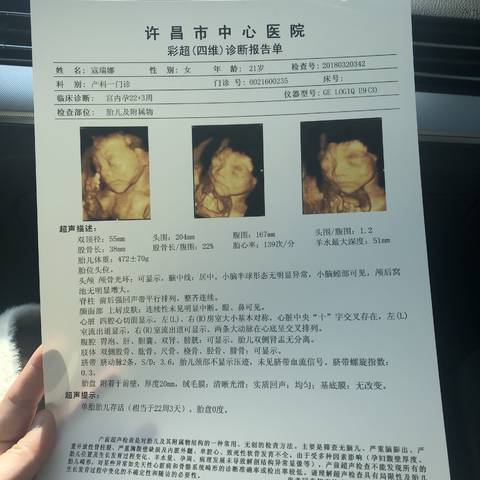 许昌市中心医院
彩超(四维)诊断报告单
姓 名: 寇瑞娜 性 别: 女 年 龄: 21岁 检查号: 20180320342
科 别: 产科一门诊 门诊 号: 0021600235 床号:
临床诊断: 宫内孕22+3周 仪器型号: GE LOGIQ E9(3)
检查部位: 胎儿及附属物
超声描述:
双顶径: 55mm 头围: 204mm 腹围: 167mm 头围/腹围: 1.2
股骨长: 38mm 股骨长/腹围: 22% 胎心率: 139次/分 羊水最大深度: 51mm
胎儿体重: 472±70g
胎位头位。
头颅 颅骨光环: 可显示, 脑中线: 居中, 小脑半球形态无明显异常, 小脑蚓部可见; 颅后窝
池无明显增大。
脊柱 前后强回声带平行排列, 整齐连续。
颜面部 上唇皮肤: 连续性未见明显中断。眼、鼻可见。
心脏 四腔心切面显示, 左(L)、右(R)房室大小基本对称, 心脏中央“十”字交叉存在, 左(L)
室流出道显示, 右(R)室流出道可显示, 两条大动脉在心底呈交叉排列。
腹腔 胃泡、肝、胆囊、双肾、膀胱: 可显示; 胎儿双侧肾盂无分离。
肢体 双侧股骨、肱骨、尺骨、桡骨、胫骨、腓骨: 可显示。
脐带 脐动脉2条, S/D: 3.6, 胎儿颈部不显示压迹, 未见脐带血流信号。脐带螺旋指数:
0.3。
胎盘 附着于前壁, 厚度20mm, 绒毛膜: 清晰光滑; 实质回声: 均匀; 基底膜: 无改变。
超声提示:
单胎胎儿存活 (相当于22周3天), 胎盘0度。
产前超声检查是对胎儿及其附属物结构的一种常用、无创的检查方法。主要是筛查无脑儿、严重脑膨出、严
重开放性脊柱裂、严重胸腹壁缺损及内脏外翻、单腔心、致死性软骨发育不全。由于受多种因素影响(孕妇腹壁厚度、